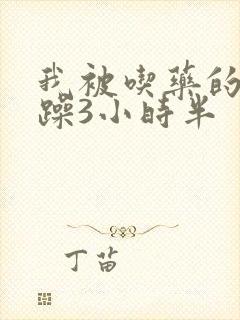 我被喫藥的
躁3小時半
丁苗